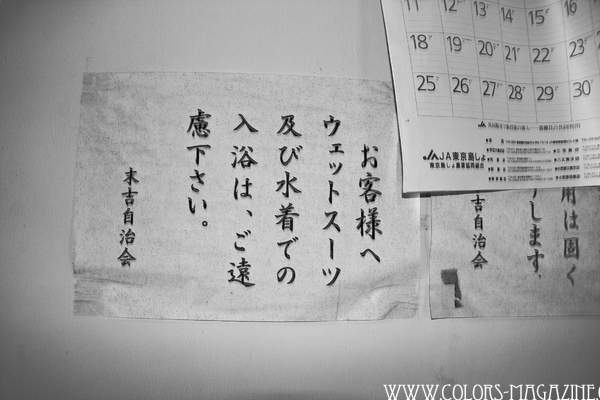 お客様へ
ウェットスーツ
及び水着での
入浴は、ご遠
慮下さい。
末吉自治会
11 12 13 14 15 16
18 19 20 21 22 23
25 26 27 28 29 30
JA東京島しょ
用は固く
します。
自治会
WWW.COLORS-MAGAZINE.